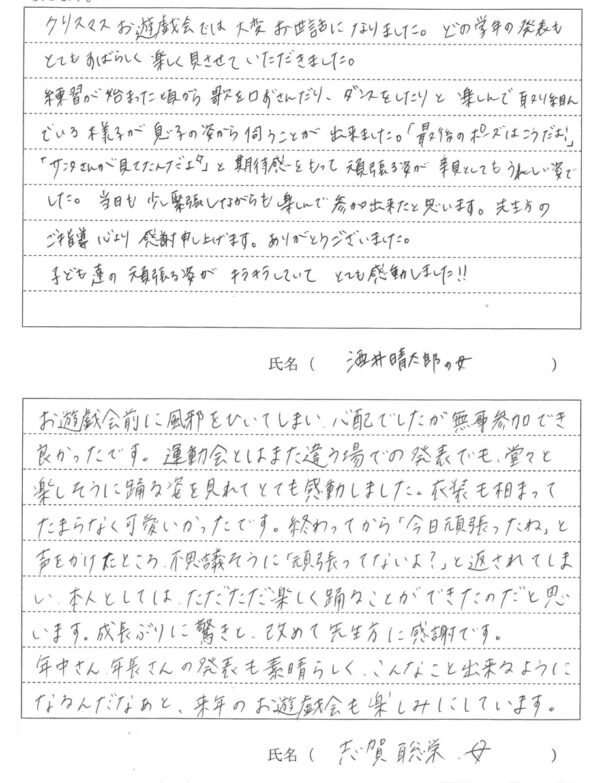 クリスマスお遊戯会では大変お世話になりました。どの学年の発表も
とてもすばらしく楽しく見させていただきました。
練習が始まった頃から歌を口ずさんだり、ダンスをしたりと楽しんで取り組ん
でいる様子が息子の姿から伺うことが出来ました。「最後のポーズはこうだよ!」
「サンタさんが見てたんだよ!」と期待感をもって頑張る姿が親としてもうれしい姿で
した。当日も少し緊張しながらも楽しんで参加出来たと思います。先生方の
ご指導心より感謝申し上げます。ありがとうございました。
子ども達の頑張る姿がキラキラしていてとても感動しました!!
氏名( 酒井晴太郎の母 )
お遊戯会前に風邪をひいてしまい、心配でしたが無事参加でき
良かったです。運動会とはまた違う場での発表でも、堂々と
楽しそうに踊る姿を見れてとても感動しました。衣装も相まって
たまらなく可愛いかったです。終わってから「今日頑張ったね」と
声をかけたところ、不思議そうに「頑張ってないよ?」と返されてしま
い、本人としては、ただただ楽しく踊ることができたのだと思
います。成長ぶりに驚きと、改めて先生方に感謝です。
年中さん、年長さんの発表も素晴らしく、こんなこと出来るように
なるんだなぁと、来年のお遊戯会も楽しみにしています。
氏名( 志賀聡栄、母 )